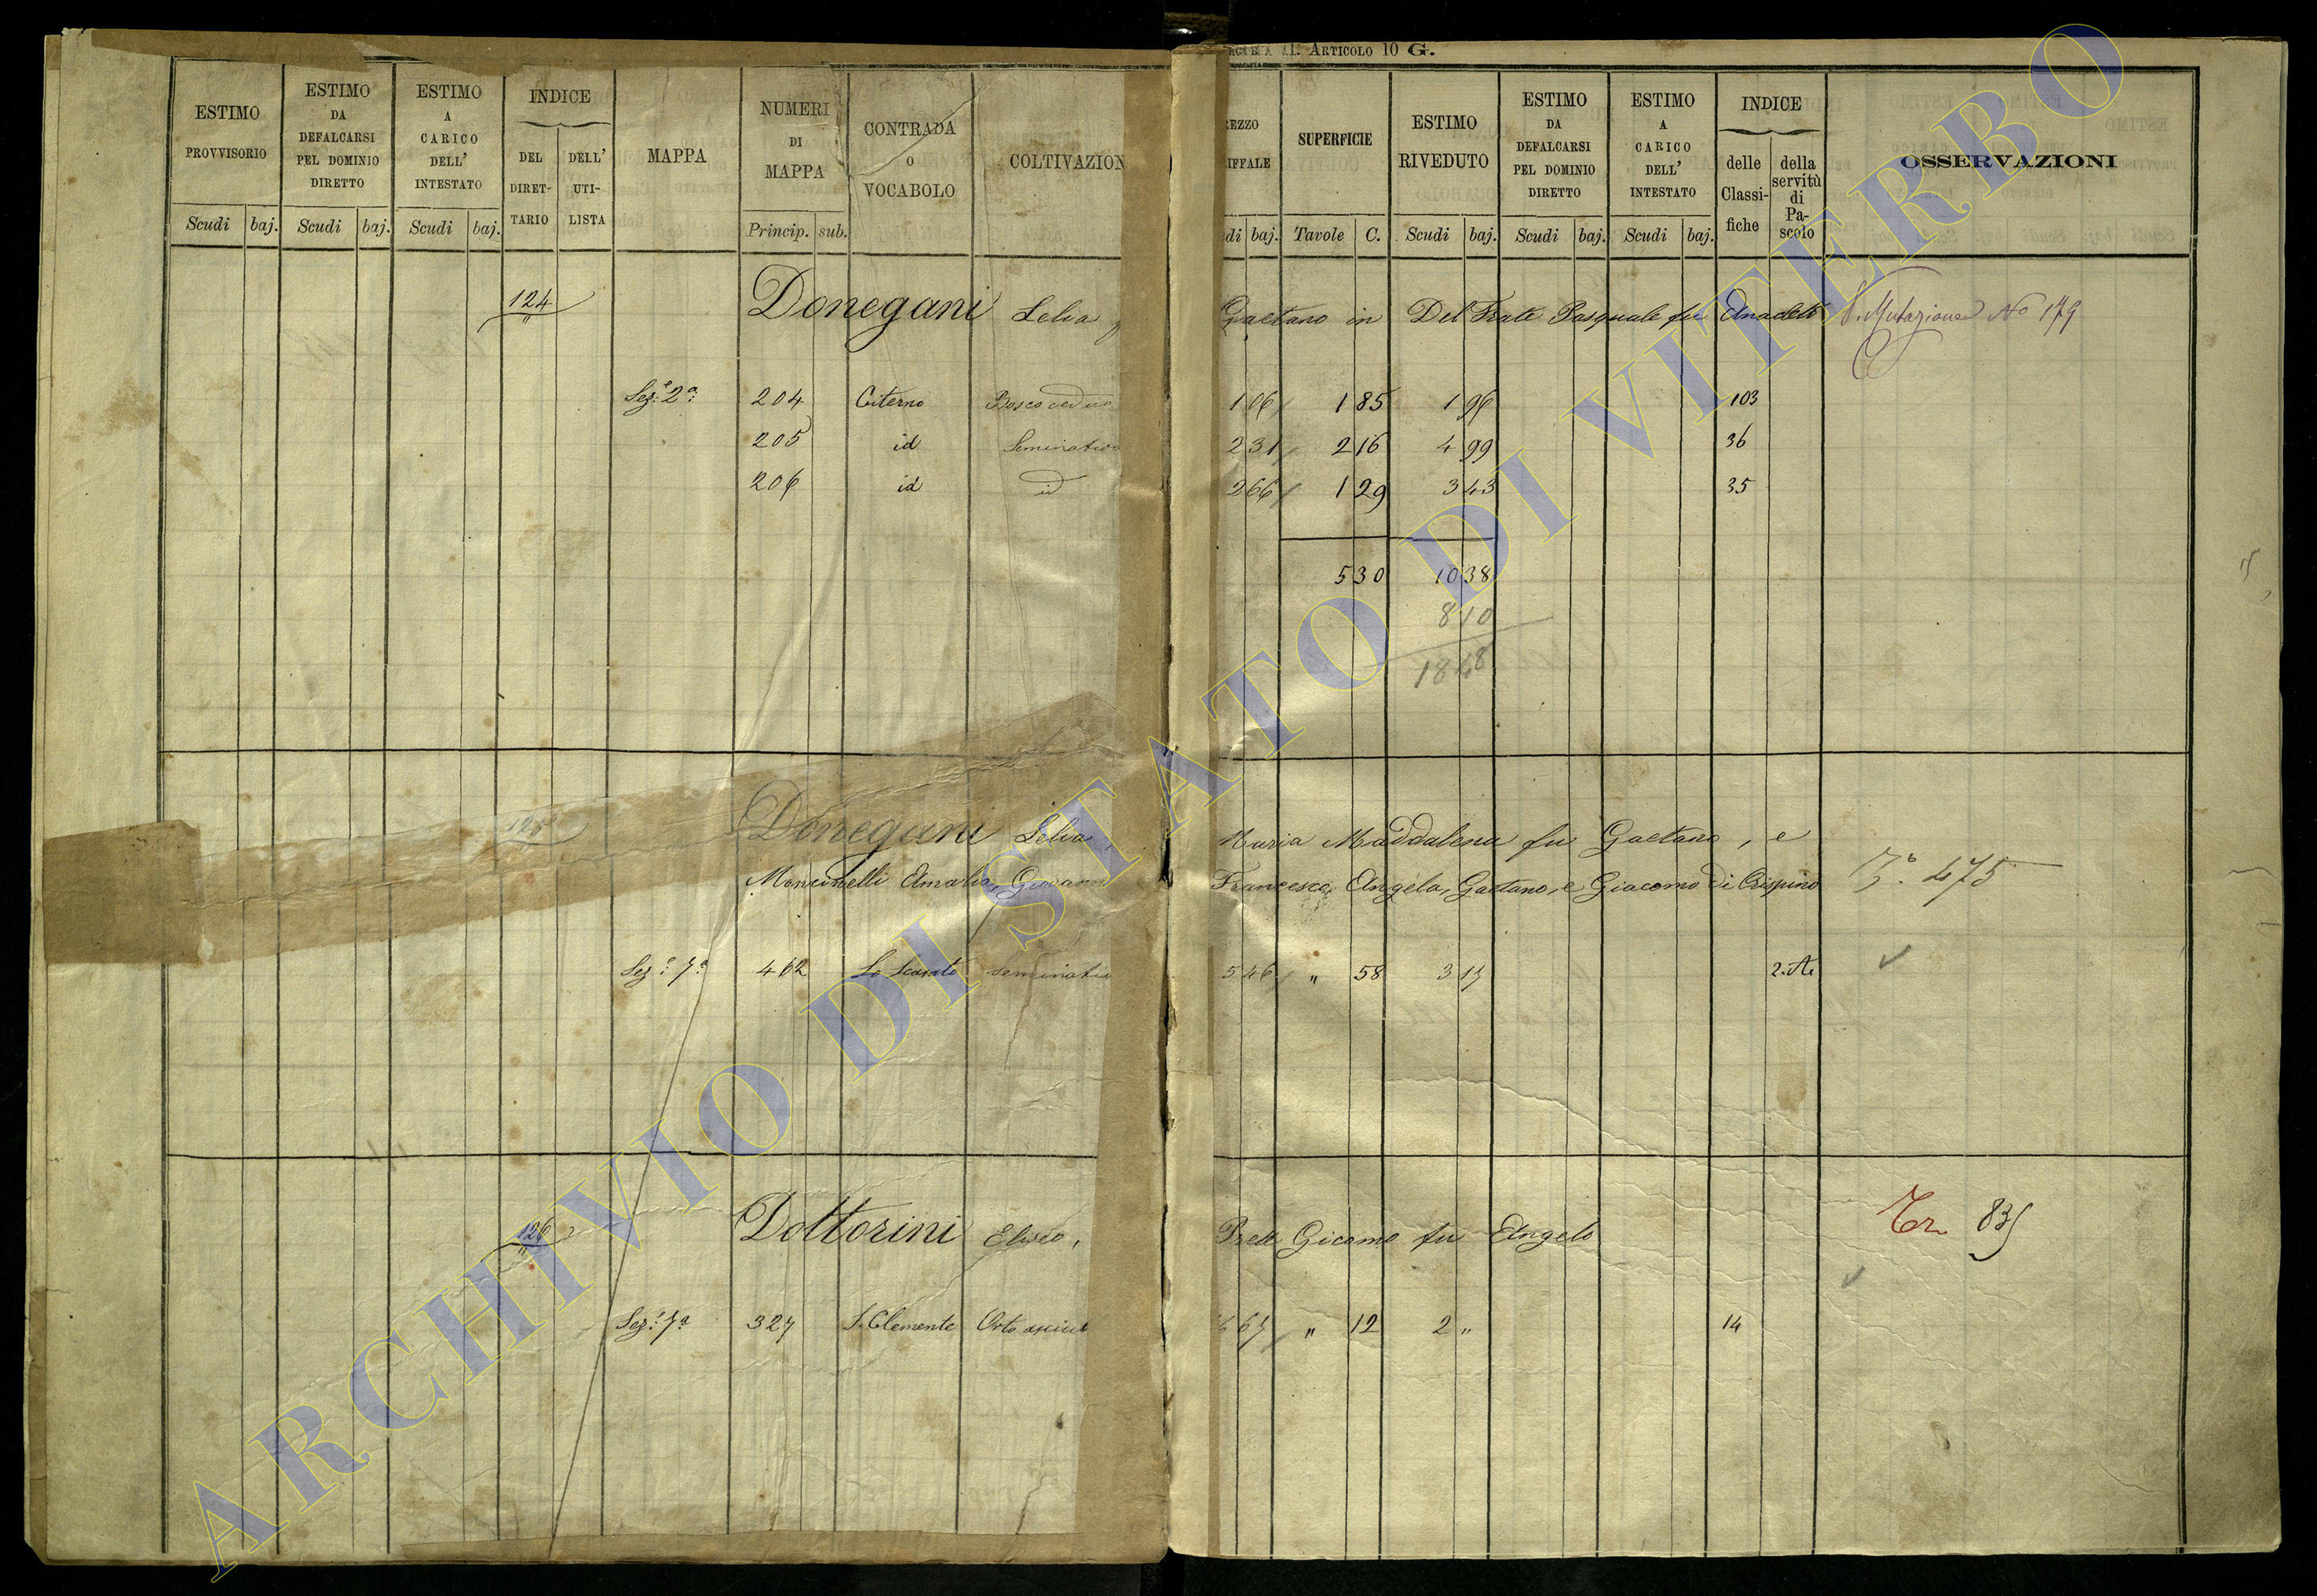 1. ARTICOLO 10 G.
ESTIMO PROVVISORIO
Scudi baj.
ESTIMO DA DEFALCARSI PEL DOMINIO DIRETTO
Scudi baj.
ESTIMO A CARICO DELL' INTESTATO
Scudi baj.
INDICE
DEL DIRET-TARIO
DELL' UTI-LISTA
MAPPA
NUMERI DI MAPPA
Princip. sub.
CONTRADA O VOCABOLO
COLTIVAZION
REZZO
IFFALE
di baj.
SUPERFICIE
Tavole C.
ESTIMO RIVEDUTO
Scudi baj.
ESTIMO DA DEFALCARSI PEL DOMINIO DIRETTO
Scudi baj.
ESTIMO A CARICO DELL' INTESTATO
Scudi baj.
INDICE
delle Classi-fiche
della servitù di Pa-scolo
OSSERVAZIONI
124 Donegani Lelia Gaetano in Del Frate Pasquale fu V. Mutazione No 179
Sez: 2a: 204 Citerno Bosco ceduo 1 06 1 85 1 96 103
205 id Seminativo 2 31 2 16 4 99 36
206 id id 2 66 1 29 3 43 35
5 30 10 38
8 10
18 48
125 Donegani Lelia, Maria Maddalena fu Gaetano, e
Amalia, Giovann Francesco, Angela, Gaetano, e Giacomo di Crispino 475
Sez: 7a 462 Lo Scasato Seminativo 5 46 " 58 3 17 2.A
126 Dottorini Eliseo, Giacomo fu Angelo 835
Sez: 7a 327 S. Clemente Orto asciut 67 " 12 2 " 14
ARCHIVIO DI STATO DI VITERBO